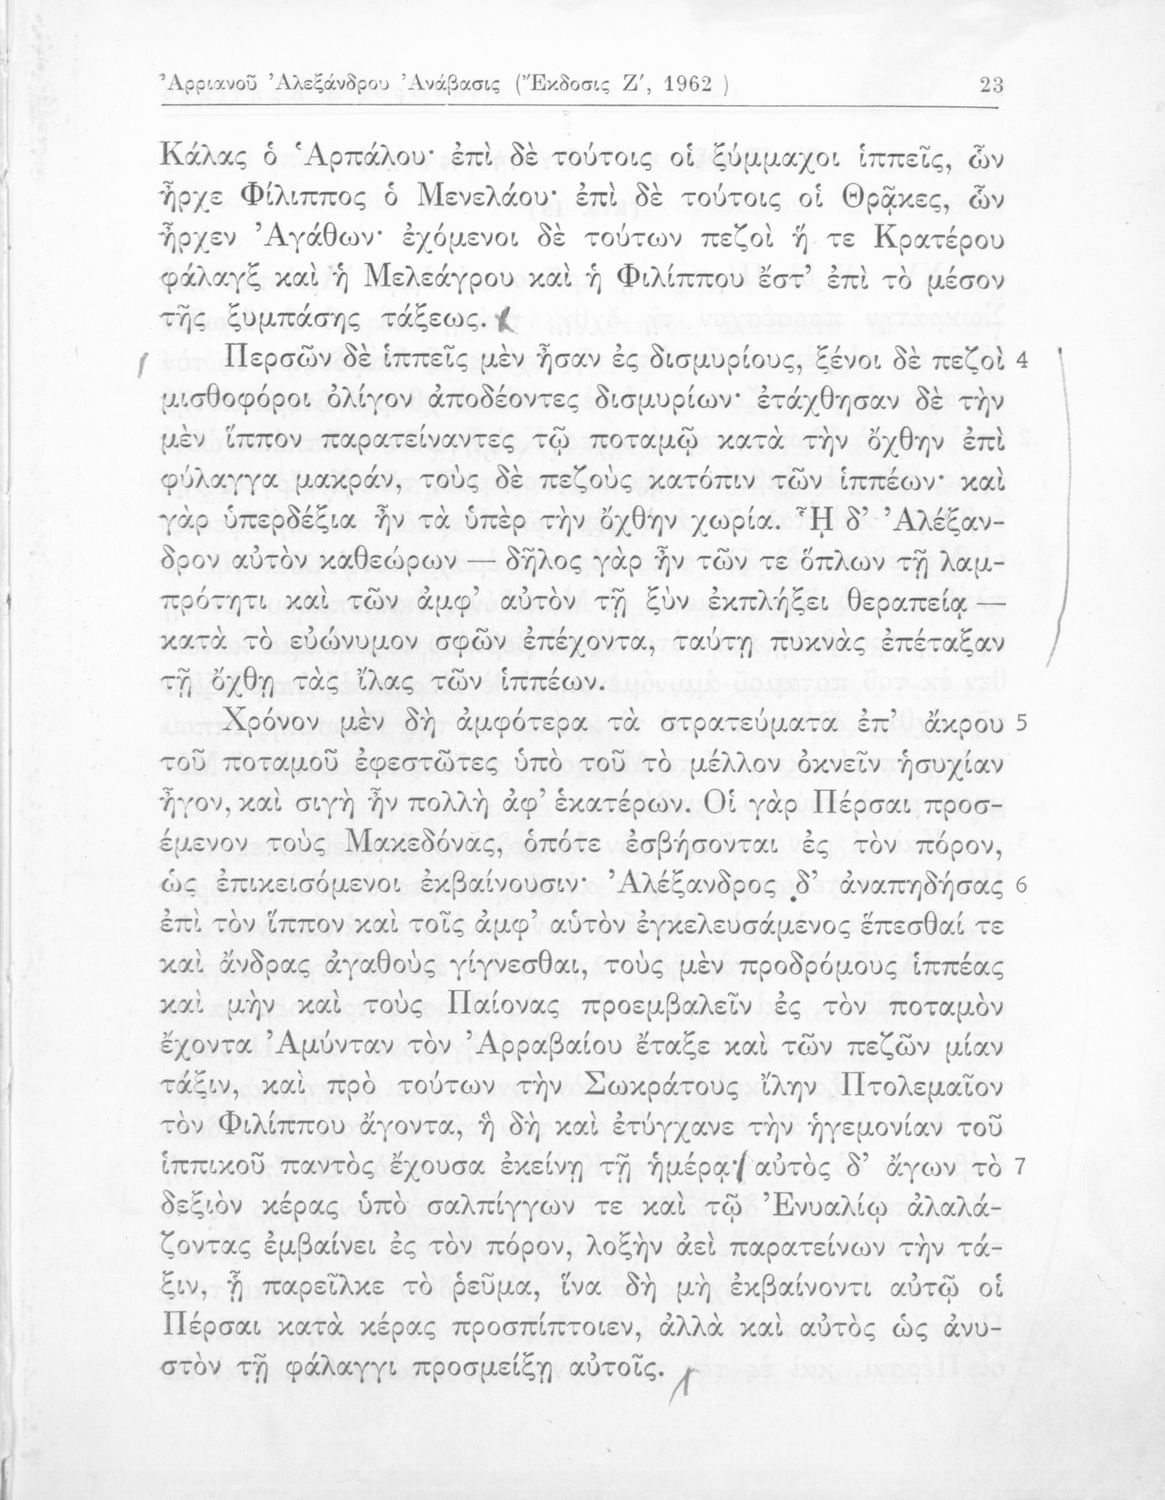 Ἀρριανοῦ Ἀλεξάνδρου Ἀνάβασις (Ἔκδοσις Ζ΄, 1962 ) 23
Κάλας ὁ Ἁρπάλου· ἐπὶ δὲ τούτοις οἱ ξύμμαχοι ἱππεῖς, ὧν
ἦρχε Φίλιππος ὁ Μενελάου· ἐπὶ δὲ τούτοις οἱ Θρᾷκες, ὧν
ἦρχεν Ἀγάθων· ἐχόμενοι δὲ τούτων πεζοὶ ἥ τε Κρατέρου
φάλαγξ καὶ ἡ Μελεάγρου καὶ ἡ Φιλίππου ἔστ’ ἐπὶ τὸ μέσον
τῆς ξυμπάσης τάξεως.
Περσῶν δὲ ἱππεῖς μὲν ἦσαν ἐς δισμυρίους, ξένοι δὲ πεζοὶ 4
μισθοφόροι ὀλίγον ἀποδέοντες δισμυρίων· ἐτάχθησαν δὲ τὴν
μὲν ἵππον παρατείναντες τῷ ποταμῷ κατὰ τὴν ὄχθην ἐπὶ
φύλαγγα μακράν, τοὺς δὲ πεζοὺς κατόπιν τῶν ἱππέων· καὶ
γὰρ ὑπερδέξια ἦν τὰ ὑπὲρ τὴν ὄχθην χωρία. ῟Ηι δ’ Ἀλέξαν-
δρον αὐτὸν καθεώρων — δῆλος γὰρ ἦν τῶν τε ὅπλων τῇ λαμ-
πρότητι καὶ τῶν ἀμφ’ αὐτὸν τῇ ξὺν ἐκπλήξει θεραπείᾳ —
κατὰ τὸ εὐώνυμον σφῶν ἐπέχοντα, ταύτῃ πυκνὰς ἐπέταξαν
τῇ ὄχθῃ τὰς ἴλας τῶν ἱππέων.
Χρόνον μὲν δὴ ἀμφότερα τὰ στρατεύματα ἐπ’ ἄκρου 5
τοῦ ποταμοῦ ἐφεστῶτες ὑπὸ τοῦ τὸ μέλλον ὀκνεῖν ἡσυχίαν
ἦγον, καὶ σιγὴ ἦν πολλὴ ἀφ’ ἑκατέρων. Οἱ γὰρ Πέρσαι προσ-
έμενον τοὺς Μακεδόνας, ὁπότε ἐσβήσονται ἐς τὸν πόρον,
ὡς ἐπικεισόμενοι ἐκβαίνουσιν· Ἀλέξανδρος δ’ ἀναπηδήσας 6
ἐπὶ τὸν ἵππον καὶ τοῖς ἀμφ’ αὑτὸν ἐγκελευσάμενος ἕπεσθαί τε
καὶ ἄνδρας ἀγαθοὺς γίγνεσθαι, τοὺς μὲν προδρόμους ἱππέας
καὶ μὴν καὶ τοὺς Παίονας προεμβαλεῖν ἐς τὸν ποταμὸν
ἔχοντα Ἀμύνταν τὸν Ἀρραβαίου ἔταξε καὶ τῶν πεζῶν μίαν
τάξιν, καὶ πρὸ τούτων τὴν Σωκράτους ἴλην Πτολεμαῖον
τὸν Φιλίππου ἄγοντα, ἣ δὴ καὶ ἐτύγχανε τὴν ἡγεμονίαν τοῦ
ἱππικοῦ παντὸς ἔχουσα ἐκείνῃ τῇ ἡμέρᾳ· αὐτὸς δ’ ἄγων τὸ 7
δεξιὸν κέρας ὑπὸ σαλπίγγων τε καὶ τῷ Ἐνυαλίῳ ἀλαλά-
ζοντας ἐμβαίνει ἐς τὸν πόρον, λοξὴν ἀεὶ παρατείνων τὴν τά-
ξιν, ᾗ παρεῖλκε τὸ ῥεῦμα, ἵνα δὴ μὴ ἐκβαίνοντι αὐτῷ οἱ
Πέρσαι κατὰ κέρας προσπίπτοιεν, ἀλλὰ καὶ αὐτὸς ὡς ἀνυ-
στὸν τῇ φάλαγγι προσμείξῃ αὐτοῖς.